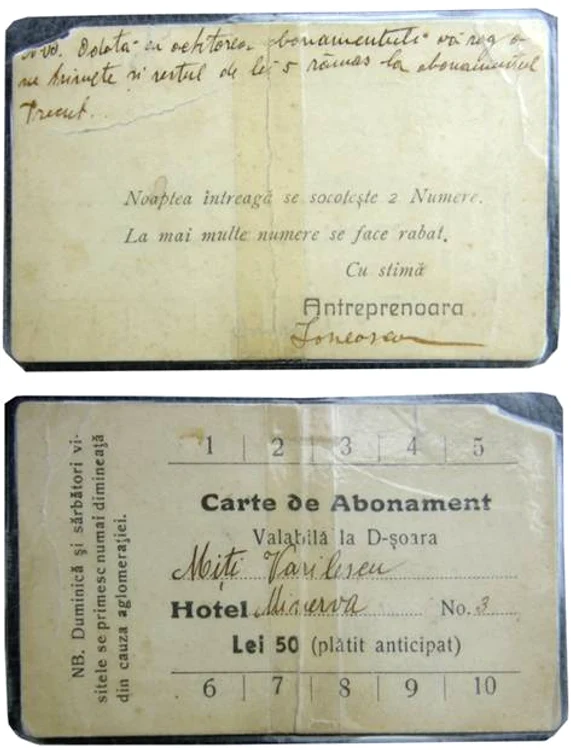 Odată cu achitarea abonamentului vă rog a
ne trimete și restul de lei 5 rămas la abonamentul
Trecut.
Noaptea întreagă se socotește 2 Numere.
La mai multe numere se face rabat.
Cu stimă
Antreprenoara
Ionescu
NB. Duminică și sărbători vi-
sitele se primesc numai dimineață
din cauza aglomerației.
1 | 2 | 3 | 4 | 5
Carte de Abonament
Valabilă la D-șoara
Miți Vasilescu
Hotel Minerva No. 3
Lei 50 (plătit anticipat)
6 | 7 | 8 | 9 | 10